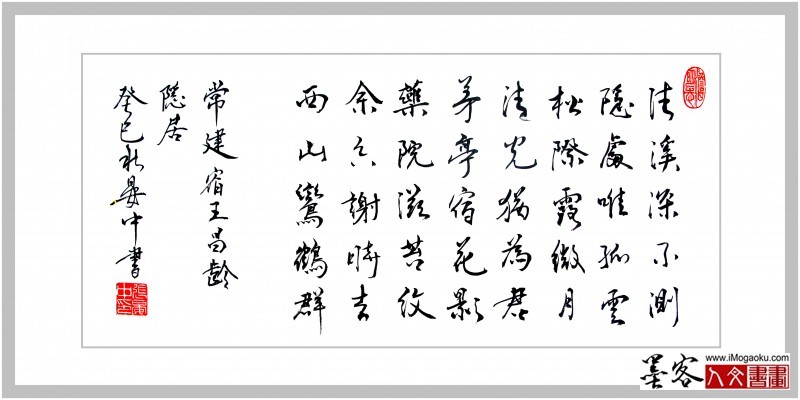 清溪深不測
隱處唯孤雲
松際露微月
清光猶為君
茅亭宿花影
藥院滋苔紋
余亦謝時去
西山鸞鶴群
常建宿王昌齡
隱居
癸巳秋晏中書
墨客
www.iMogaoku.com
人文書畫